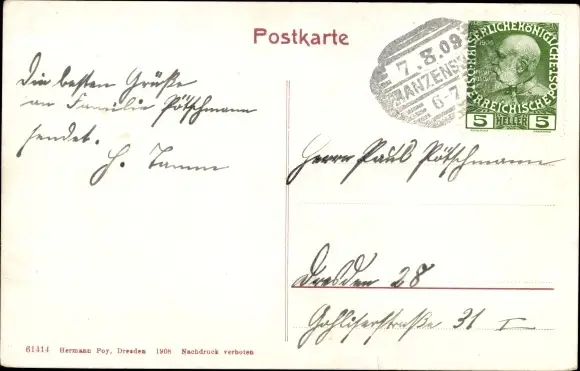 Postkarte
7.8.09
ANZENS
6-7
KAISERLICHE KÖNIGLICHE ÖS
REICHISCHE
5 HELLER 5
Die besten Grüße
an Familie Pötschmann
sendet.
H. Tamm
Herrn Paul Pötschmann
Dresden 28
Gohliserstraße 31 I
61414 Hermann Poy, Dresden 1908 Nachdruck verboten